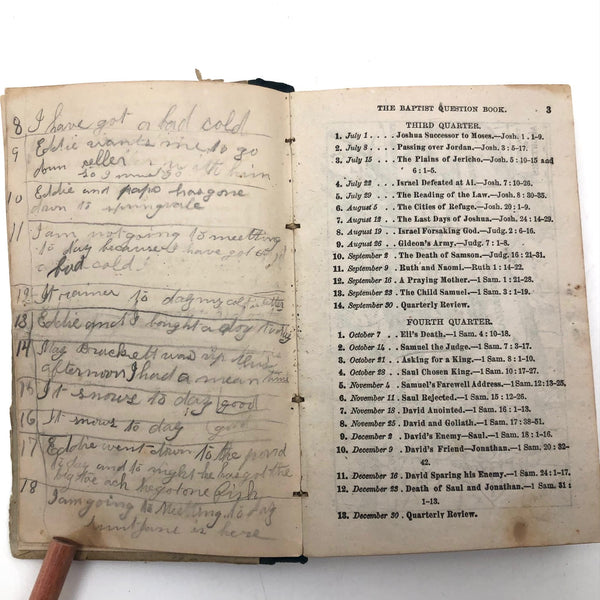 8 I have got a bad cold
9 Eddie wants me to go
down celler
so I must go with him
10 Eddie and papa has gone
down to springvale
11 I am not going to meeting
to day because I have got
a bad cold
12 It to day my cold is
13 Eddie and I bought a dog to day
14 Brackett was up this
afternoon I had a mean time
15 It snows to day good
16 It snows to day good
17 Eddie went down to the pond
to day and to night he has got the
ach he got one fish
18 I am going to Meeting to day
aunt Jane is here
THE BAPTIST QUESTION BOOK. 3
THIRD QUARTER.
1. July 1 . . . . Joshua Successor to Moses.—Josh. 1:1-9.
2. July 8 . . . . Passing over Jordan.—Josh. 3:5-17.
3. July 15 . . . The Plains of Jericho.—Josh. 5:10-15 and
6:1-5.
4. July 22 . . . Israel Defeated at Ai.—Josh. 7:10-26.
5. July 29 . . . The Reading of the Law.—Josh. 8:30-35.
6. August 5 . . . The Cities of Refuge.—Josh. 20:1-9.
7. August 12 . . The Last Days of Joshua.—Josh. 24:14-29.
8. August 19 . . Israel Forsaking God.—Judg. 2:6-16.
9. August 26 . . Gideon's Army.—Judg. 7:1-8.
10. September 2 . The Death of Samson.—Judg. 16:21-31.
11. September 9 . Ruth and Naomi.—Ruth 1:14-22.
12. September 16 . A Praying Mother.—1 Sam. 1:21-28.
13. September 23 . The Child Samuel.—1 Sam. 3:1-19.
14. September 30 . Quarterly Review.
FOURTH QUARTER.
1. October 7 . . Eli's Death.—1 Sam. 4:10-18.
2. October 14 . . Samuel the Judge.—1 Sam. 7:3-17.
3. October 21 . . Asking for a King.—1 Sam. 8:1-10.
4. October 28 . . Saul Chosen King.—1 Sam. 10:17-27.
5. November 4 . . Samuel's Farewell Address.—1 Sam. 12:13-25.
6. November 11 . Saul Rejected.—1 Sam. 15:12-26.
7. November 18 . David Anointed.—1 Sam. 16:1-13.
8. November 25 . David and Goliath.—1 Sam. 17:38-51.
9. December 2 . . David's Enemy—Saul.—1 Sam. 18:1-16.
10. December 9 . . David's Friend—Jonathan.—1 Sam. 20:32-
42.
11. December 16 . David Sparing his Enemy.—1 Sam. 24:1-17.
12. December 23 . Death of Saul and Jonathan.—1 Sam. 31:
1-13.
13. December 30 . Quarterly Review.